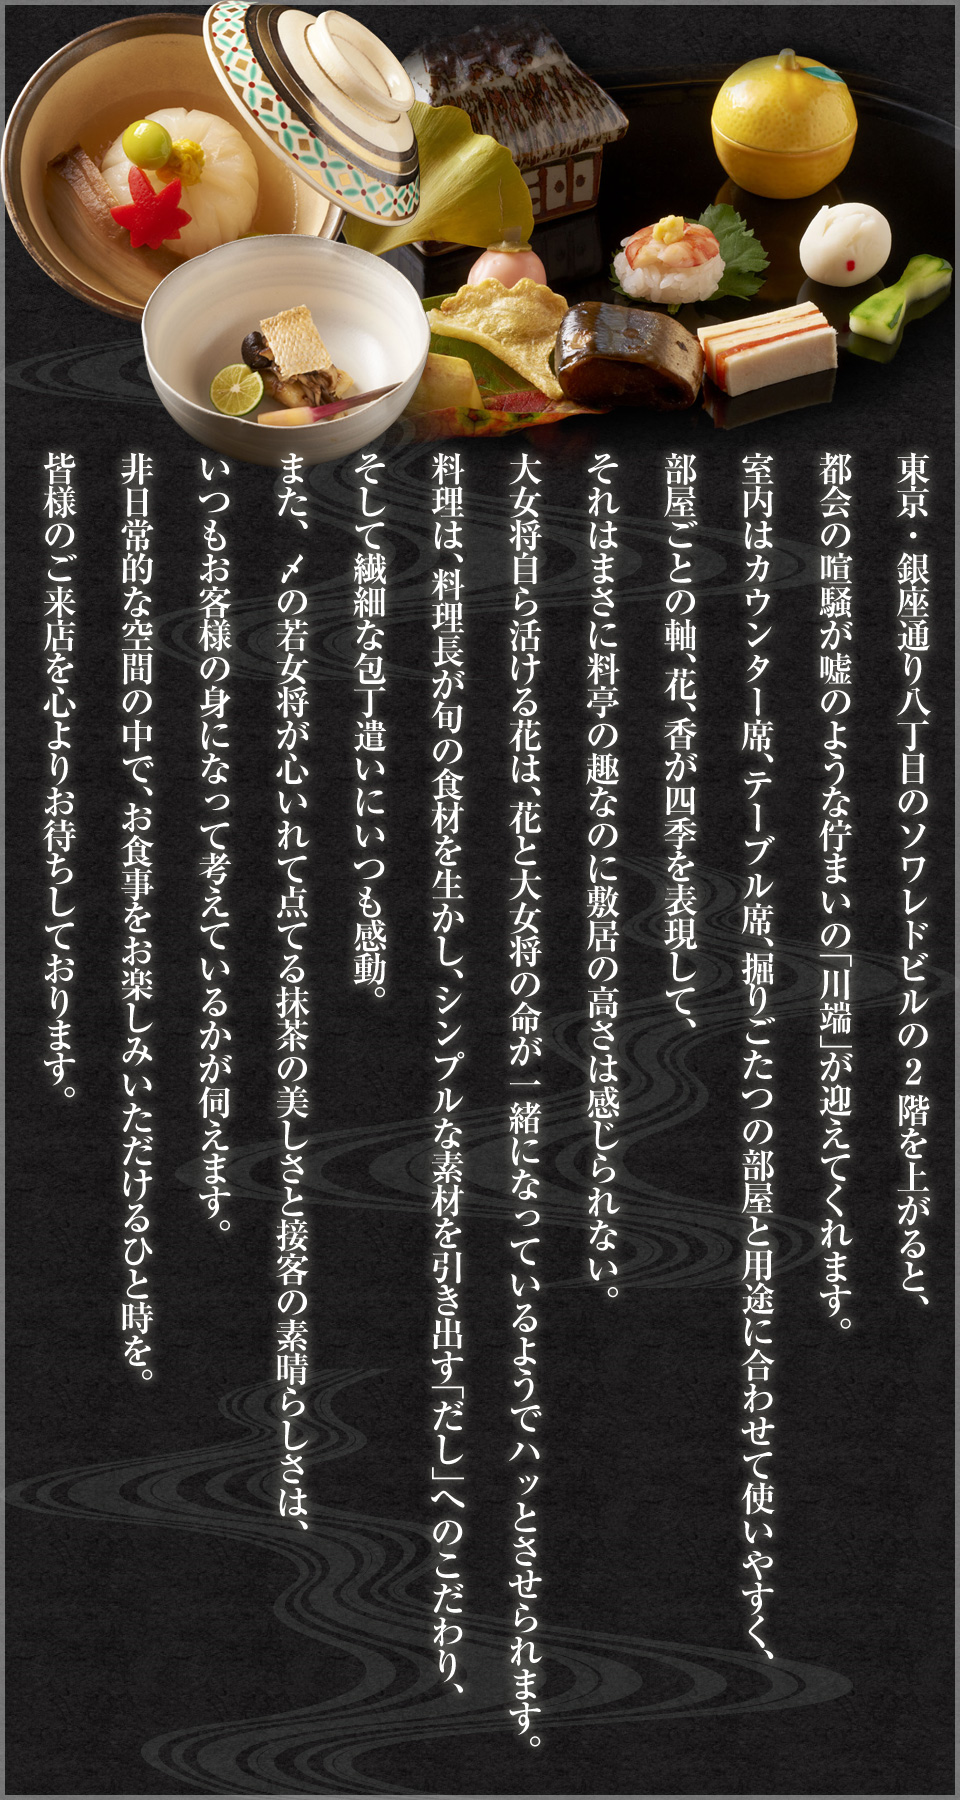 東京・銀座通り八丁目のソワレドビルの2階を上がると、
都会の喧騒が嘘のような佇まいの「川端」が迎えてくれます。
室内はカウンター席、テーブル席、掘りごたつの部屋と用途に合わせて使いやすく、
部屋ごとの軸、花、香が四季を表現して、
それはまさに料亭の趣なのに敷居の高さは感じられない。
大女将自ら活ける花は、花と大女将の命が一緒になっているようでハッとさせられます。
料理は、料理長が旬の食材を生かし、シンプルな素材を引き出す「だし」へのこだわり、
そして繊細な包丁遣いにいつも感動。
また、〆の若女将が心いれて点てる抹茶の美しさと接客の素晴らしさは、
いつもお客様の身になって考えているかが伺えます。
非日常的な空間の中で、お食事をお楽しみいただけるひと時を。
皆様のご来店を心よりお待ちしております。